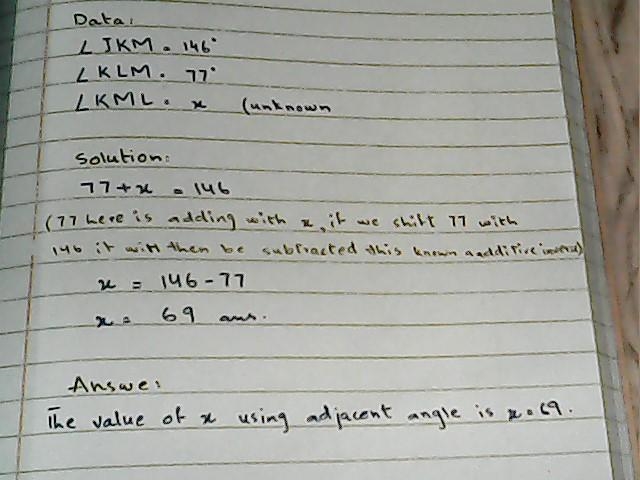 Data:
∠ JKM = 146°
∠ KLM = 77°
∠ KML = x (unknown
Solution:
77 + x = 146
(77 here is adding with x, if we shift 77 with
146 it will then be subtracted this known
x = 146 - 77
x = 69 ans.
Answe:
The value of x using adjacent angle is x = 69.